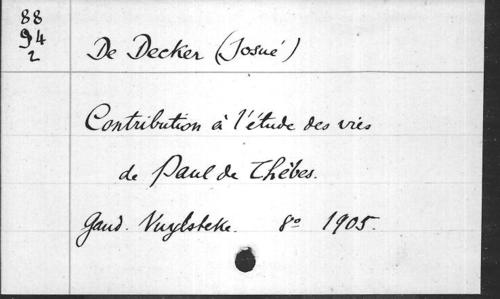 88
94
2
De Decker (Josué)
Contribution à l'étude des vies
de Paul de Thèbes.
Gand. Vuylsteke. 8° 1905.